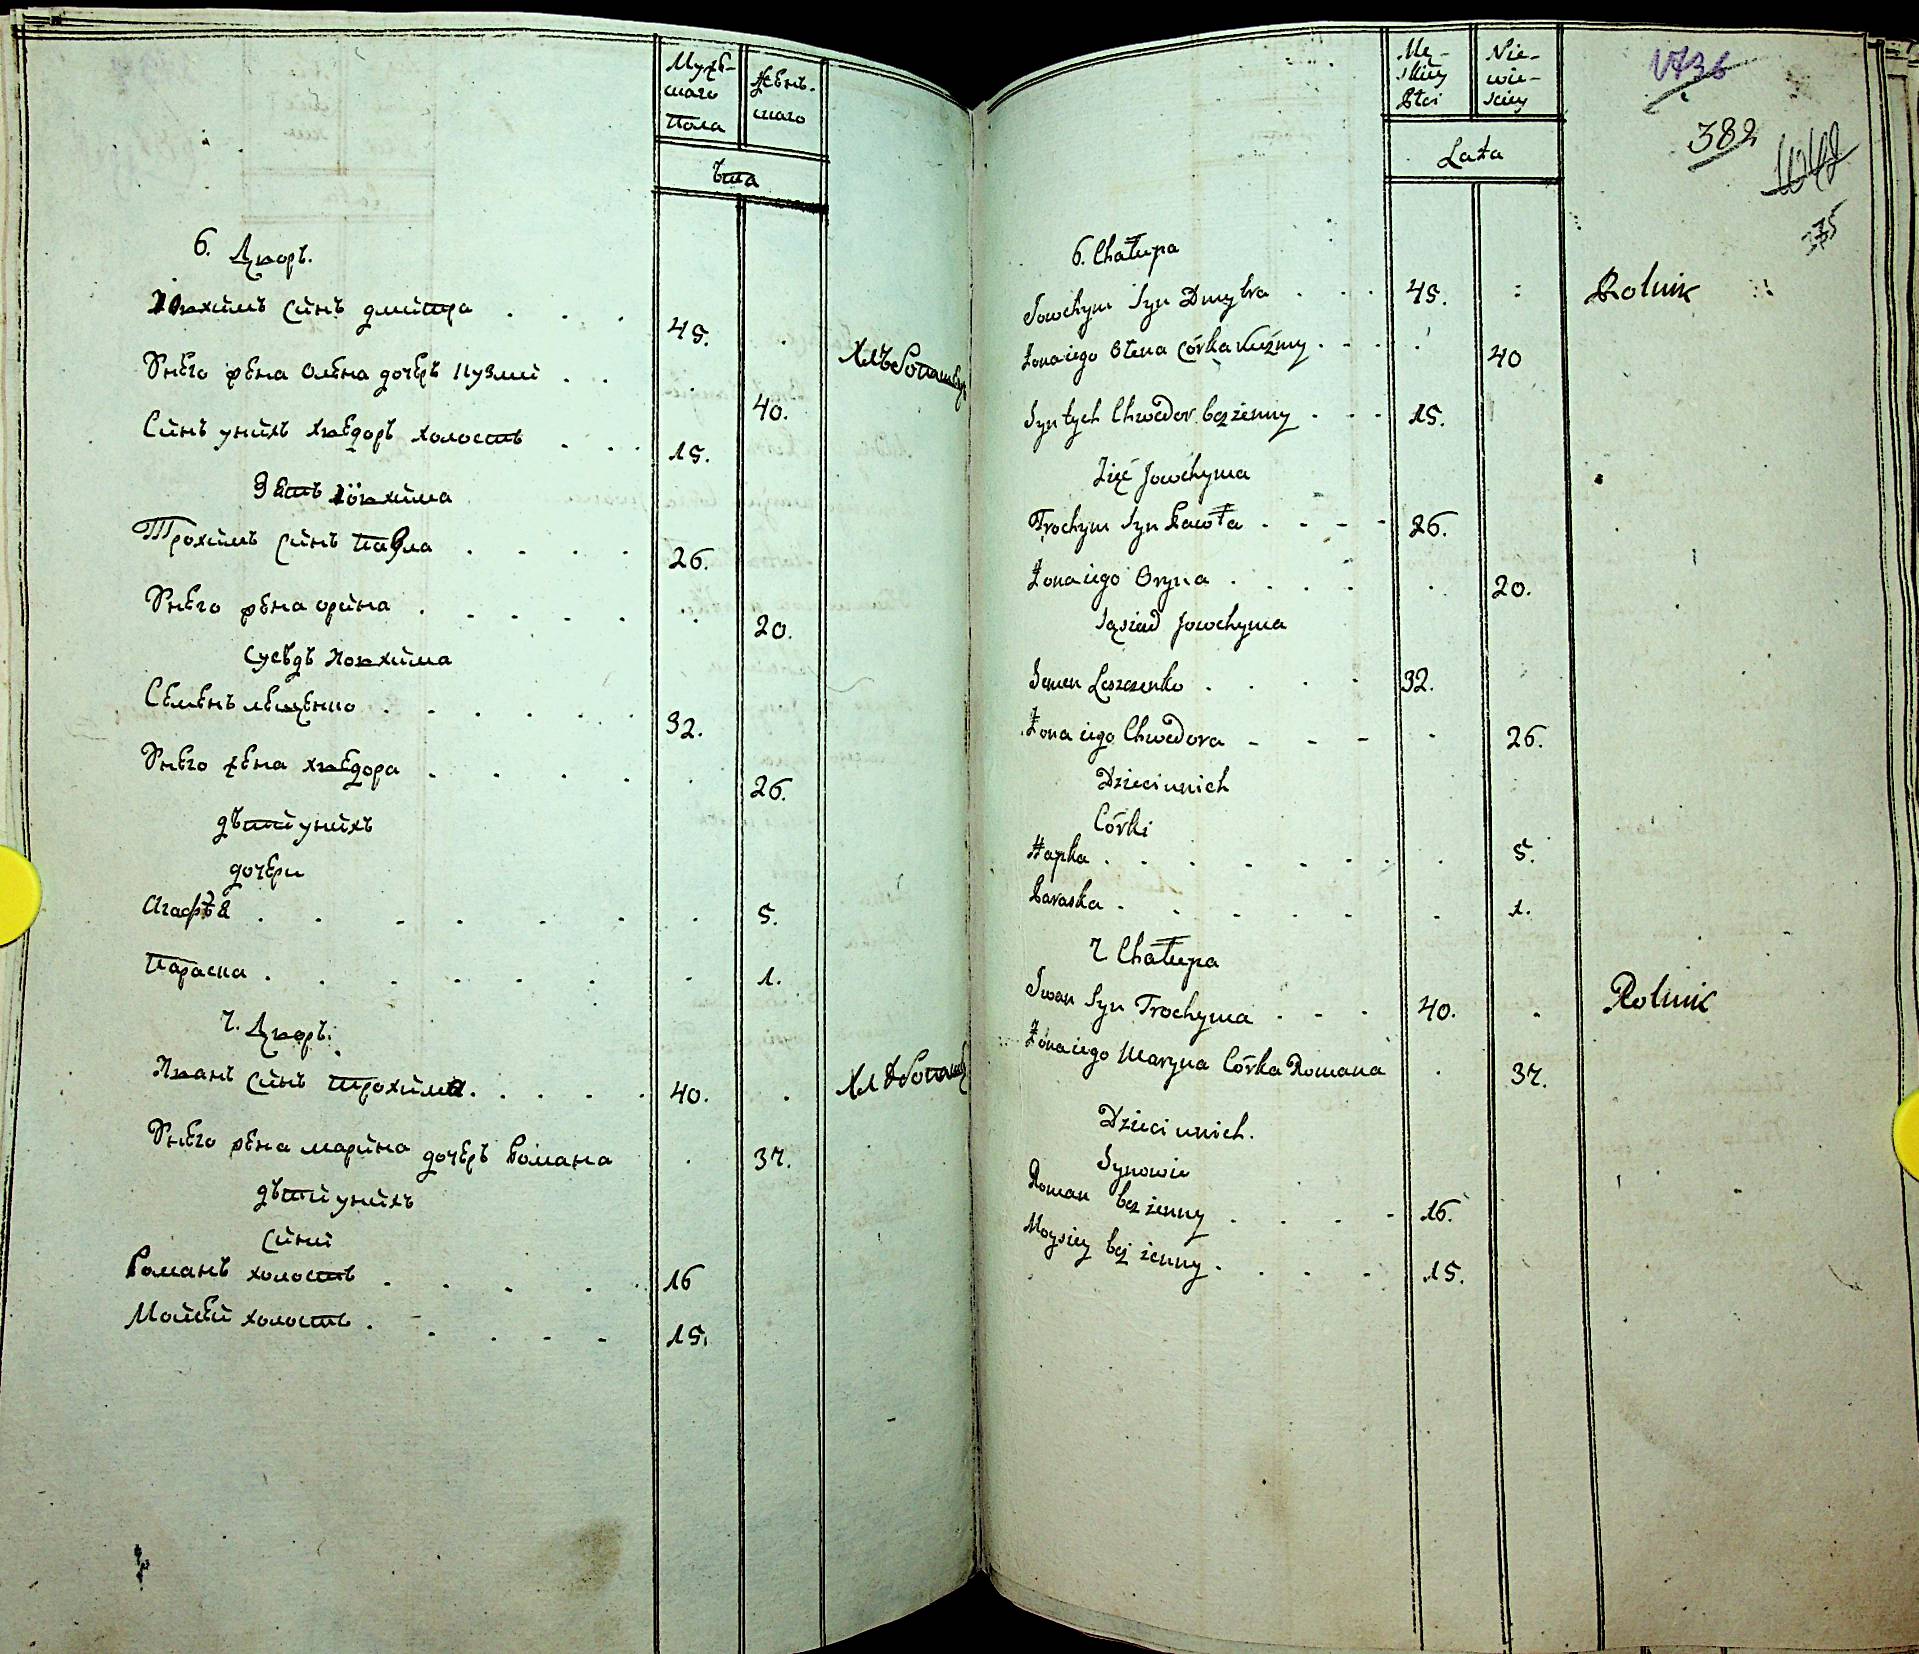 Мужѣ-
скаго
Пола
Женъ-
скаго
Лѣта
6. Дворъ.
Ювхимъ синъ дмитра . . . 45. .
Хлѣбопашець
Унего жена олена дочеръ кузми . . 40.
Синъ унихъ хведоръ холостъ . . . 15.
Зять Ювхима
Трохимъ синъ павла . . . . 26.
Унего жена орина . . . . . . 20.
Сусѣдъ Ювхима
Семенъ лещенко . . . . . . 32.
Унего жена хведора . . . . . 26.
дѣти унихъ
дочери
Агафѣя . . . . . . . 5.
Параска . . . . . . . 1.
7. Дворъ.
Иванъ синъ трохима. . . . . 40. .
Хлѣбопашець
Унего жена марина дочеръ Романа . 37.
дѣти унихъ
сини
Романъ холостъ . . . . 16
Мойсей холостъ . . . . . 15.
Mę-
skiey
Płci
Nie-
wie-
sciey
Lata
1736
382
1048
375
6. Chałupa
Jowchym Syn Dmytra . . . 45. :
Rolnik
Żona iego Olena Córka Kuźmy . . . . 40
Syn tych Chwedor bezżenny . . . 15.
Zięć Jowchyma
Trochym Syn Pawła . - - - 26.
Żona iego Oryna . . . . . 20.
Sąsiad Jowchyma
Semen Leszczenko . . . . 32.
Żona iego Chwedora - - - - . 26.
Dzieci unich
Córki
Hapka . . . . . . . . 5.
Paraska . . . . . . 1.
7 Chałupa
Iwan Syn Trochyma . . . 40. .
Rolnik
Żona iego Maryna Córka Romana . 37.
Dzieci unich.
Synowie
Roman bez żenny . . . - 16.
Moysiey bez żenny . . . . 15.